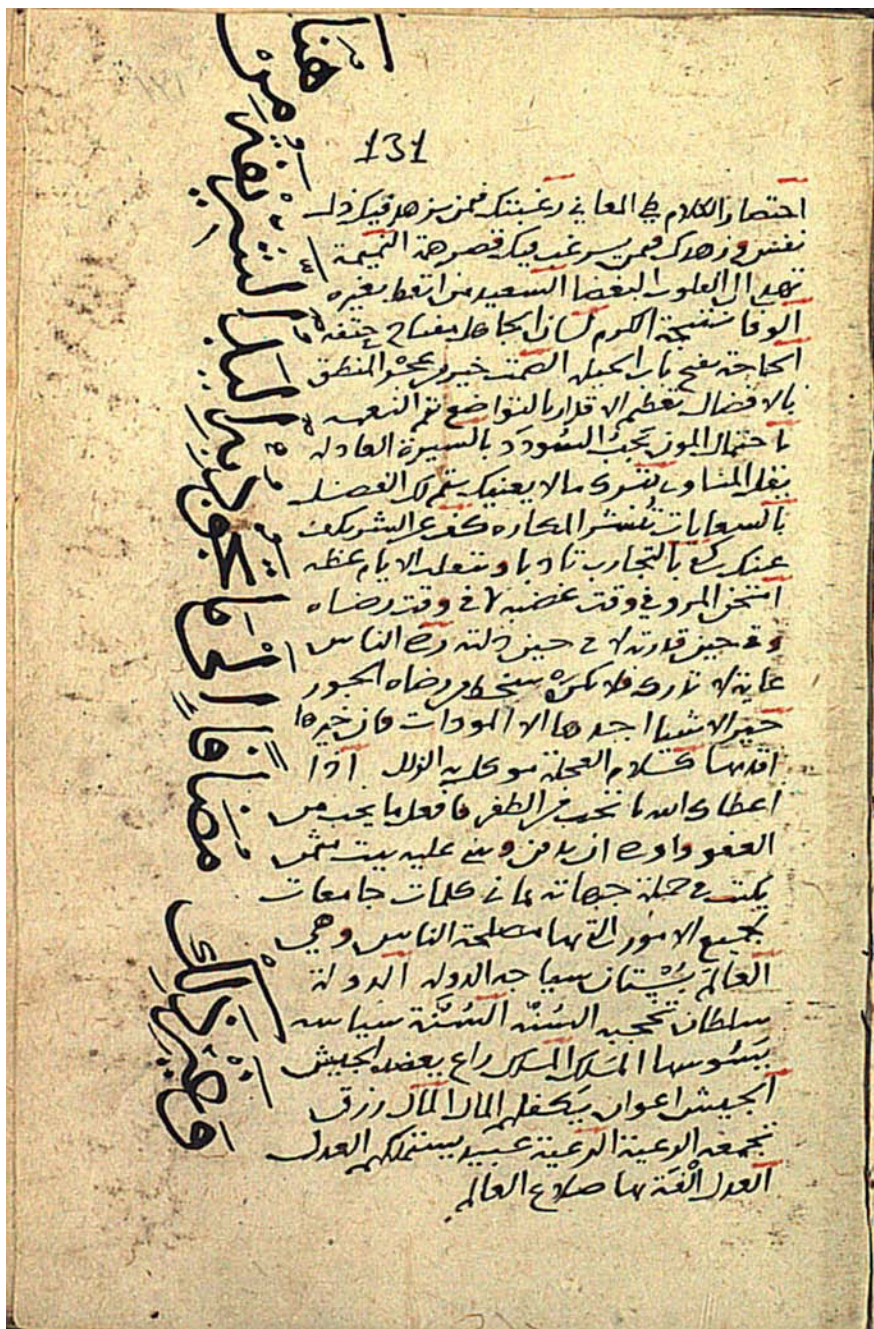 131
احتصار الكلام طي المعاني رغبتك فيمن يزهد فيك ذل
نفس وزهدك فيمن يرغب فيك قصر همة النميمة
تهدي الى القلوب البغضا السعيد من اتعظ بغيره
الوفا نتيجة الكرم لسان الجاهل مفتاح حتفه
الحاجة تفتح باب الحيل الصمت خير من عجز المنطق
بالافضال تعظم الاقدار بالتواضع تتم النعمة
باحتمال المون يجب السودد بالسيرة العادلة
يقل المناوى بترك مالا يعنيك يتم لك الفضل
بالسعايات تنشر المكاره كف عن الشر يكف
عنك كفى بالتجارب تادبا وبتقلب الايام عظه
امتحن المرو في وقت غضبه لا في وقت رضاه
وفي حين قدرته لا في حين ذلته رضى الناس
غاية لا تدرك فلا تكره سخط من رضاه الجور
خير الاشيا اجدها الا المودات فان خيرها
اقدمها كلام العجلة موكل به الزلل اذا
اعطاك الله ما تحب من الظفر فافعل ما يحب من
العفو واوصى ان يدفن ويبنى عليه بيت مثمن
يكتب في جملة جهاته ثماني كلمات جامعات
لجميع الامور التي بها مصلحة الناس وهي
العالم بستان سياجه الدولة الدولة
سلطان تحجبه السنة السنة سياسة
يسوسها الملك الملك راع يعضده الجيش
الجيش اعوان يكفلهم المال المال رزق
تجمعه الرعية الرعية عبيد يستملكهم العدل
العدل الفة بها صلاح العالم
هنا
من
الشريفة
اليد
به
تجود
ما
الى
مضافا
ذلك